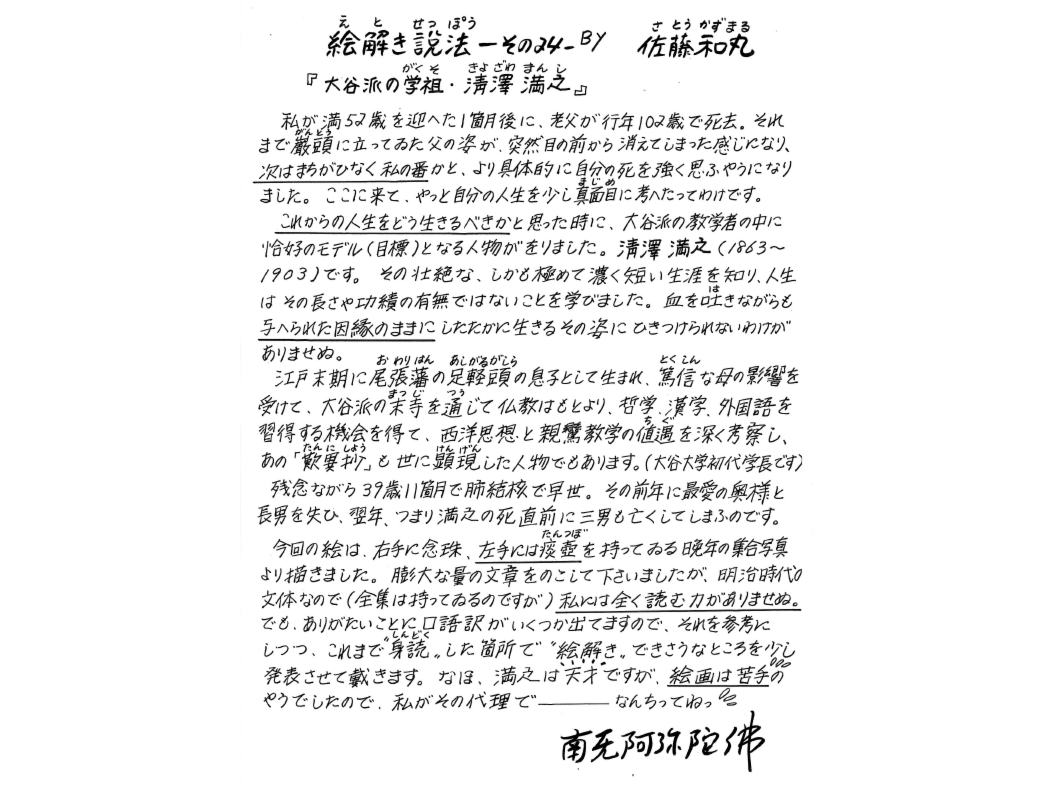 絵解き説法―その24― BY 佐藤和丸
『大谷派の学祖・清澤満之』
私が満52歳を迎へた1箇月後に、老父が行年102歳で死去。それ
まで巌頭に立ってゐた父の姿が、突然目の前から消えてしまった感じになり、
次はまちがひなく私の番かと、より具体的に自分の死を強く思ふやうになり
ました。ここに来て、やっと自分の人生を少し真面目に考へたってわけです。
これからの人生をどう生きるべきかと思った時に、大谷派の教学者の中に
恰好のモデル(目標)となる人物がをりました。清澤満之(1863〜
1903)です。その壮絶な、しかも極めて濃く短い生涯を知り、人生
はその長さや功績の有無ではないことを学びました。血を吐きながらも
与へられた因縁のままにしたたかに生きるその姿にひきつけられないわけが
ありませぬ。
江戸末期に尾張藩の足軽頭の息子として生まれ、篤信な母の影響を
受けて、大谷派の末寺を通じて仏教はもとより、哲学、漢学、外国語を
習得する機会を得て、西洋思想と親鸞教学の値遇を深く考察し、
あの「歎異抄」も世に顕現した人物でもあります。(大谷大学初代学長です)
残念ながら39歳11箇月で肺結核で早世。その前年に最愛の奥様と
長男を失ひ、翌年、つまり満之の死直前に三男も亡くしてしまふのです。
今回の絵は、右手に念珠、左手には痰壺を持ってゐる晩年の集合写真
より描きました。膨大な量の文章をのこして下さいましたが、明治時代の
文体なので(全集は持ってゐるのですが)私には全く読む力がありませぬ。
でも、ありがたいことに口語訳がいくつか出てますので、それを参考に
しつつ、これまで〝身読〟した箇所で〝絵解き〟できさうなところを少し
発表させて戴きます。なほ、満之は天才ですが、絵画は苦手の
やうでしたので、私がその代理で――――なんちってねっ
南无阿弥陀佛